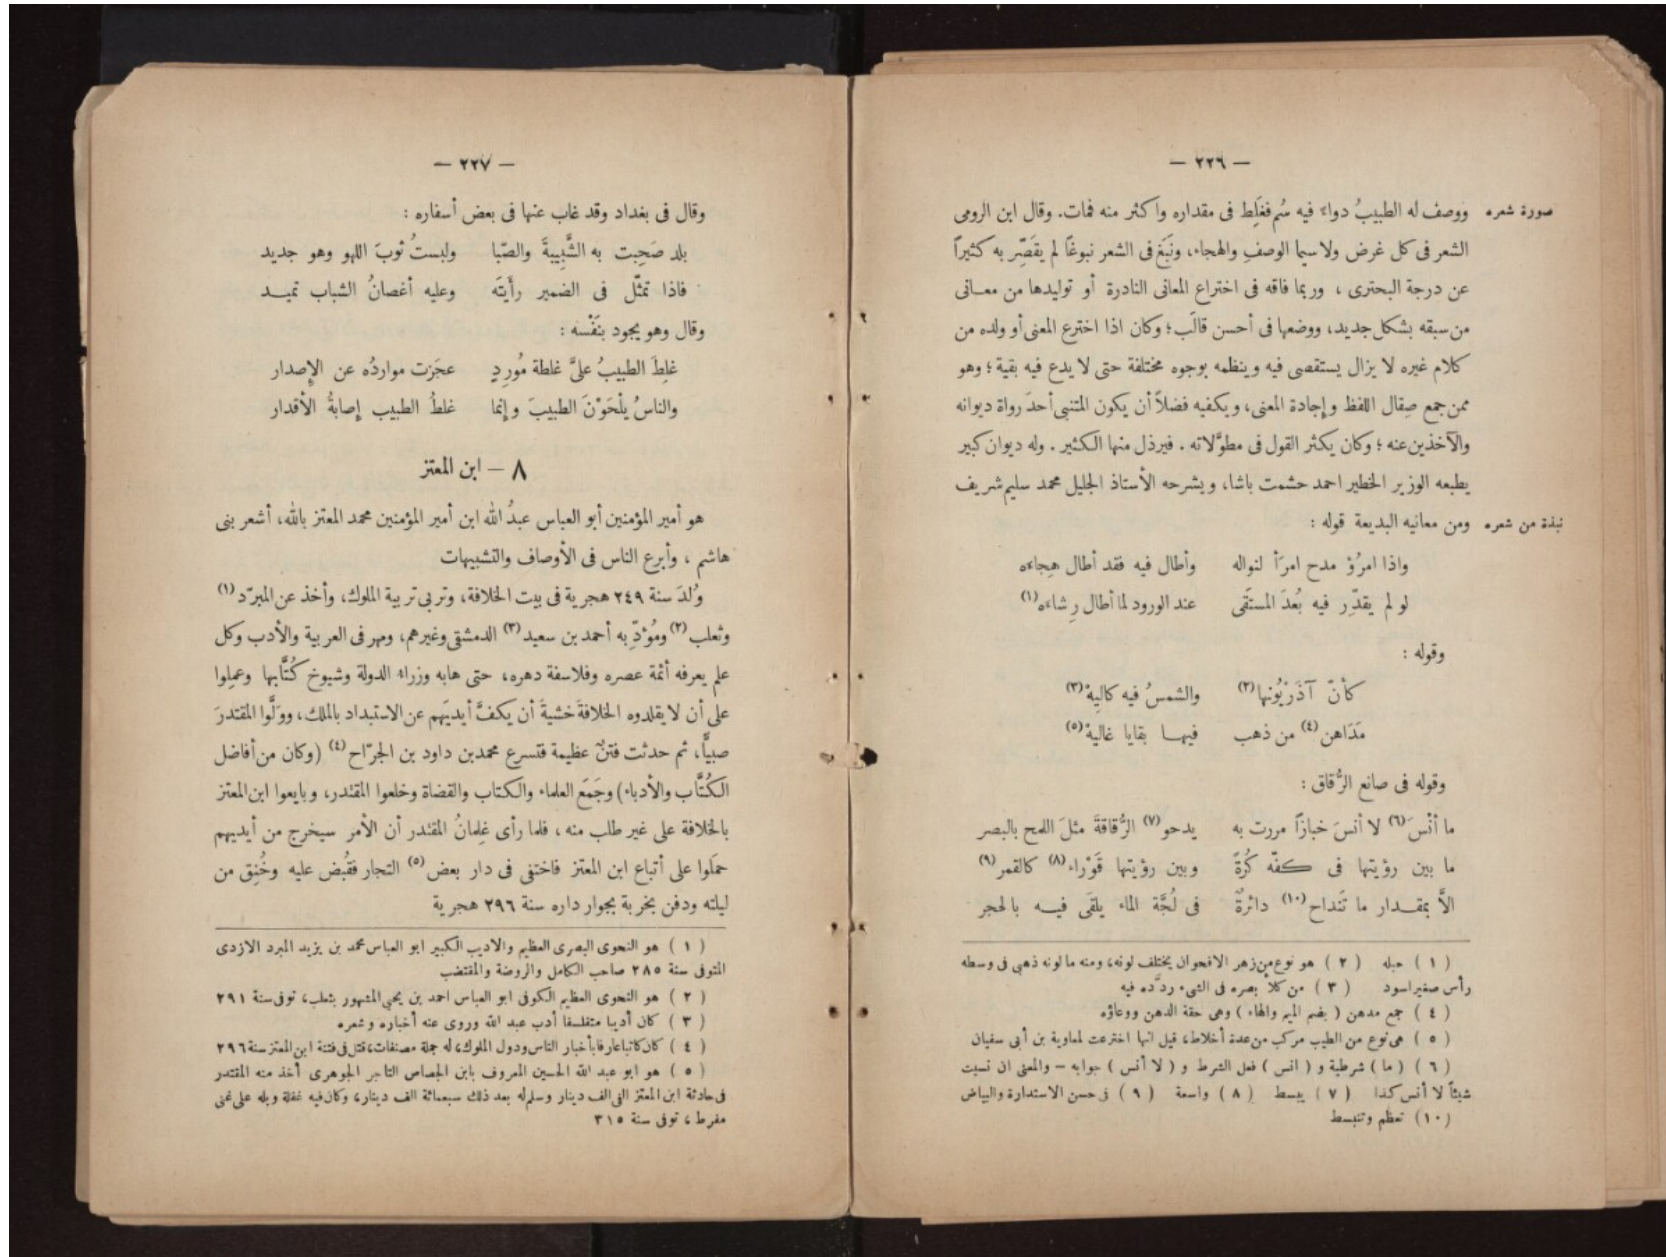 — ٢٢٦ —
صورة شعره
ووصف له الطبيبُ دواءً فيه سُم فغلِط فى مقداره واكثر منه فمات. وقال ابن الرومى
الشعر فى كل غرض ولا سيما الوصفِ والهجاء، ونَبَغ فى الشعر نبوغًا لم يقصِّر به كثيراً
عن درجة البحترى ، وربما فاقه فى اختراع المعانى النادرة أو توليدها من معــانى
من سبقه بشكل جديد، ووضعها فى أحسن قالَب؛ وكان اذا اخترع المعنى أو ولده من
كلام غيره لا يزال يستقصى فيه وينظمه بوجوه مختلفة حتى لا يدع فيه بقية؛ وهو
ممن جمع صِقال اللفظ وإجادة المعنى، ويكفيه فضلاً أن يكون المتنبى أحدَ رواة ديوانه
والآخذين عنه ؛ وكان يكثر القول فى مطوَّلاته . فيرذل منها الكثير . وله ديوان كبير
يطبعه الوزير الخطير احمد حشمت باشا، ويشرحه الأستاذ الجليل محمد سليم شريف
نبذة من شعره
ومن معانيه البديعة قوله :
واذا امرُؤ مدح امرَأ لنواله وأطال فيه فقد أطال هِجاءه
لو لم يقدِّر فيه بُعدَ المستَقى عند الورود لما أطال رِشاءه (١)
وقوله :
كأنّ آذَرْيُونها (٢) والشمسُ فيه كالِيهْ (٣)
مَدَاهن (٤) من ذهب فيهــا بقايا غاليهْ (٥)
وقوله فى صانع الرُّقاق :
ما أنْسَ (٦) لا أنسَ خبازاً مررت به يدحو (٧) الرُّقاقةَ مثلَ اللمح بالبصر
ما بين رؤيتها فى كفّه كُرةً وبين رؤيتها قَوْراء (٨) كالقمر (٩)
الاَّ بمقــدار ما تَنداح (١٠) دائرةٌ فى لُجَّة الماء يلقَى فيــه بالحجر
(١) حبله (٢) هو نوع من زهر الاقحوان يختلف لونه، ومنه ما لونه ذهبى فى وسطه
رأس صغير اسود (٣) من كلأ بصره فى الشىء ردَّده فيه
(٤) جمع مدهن ( بضم الميم والهاء ) وهى حقة الدهن ووعاؤه
(٥) هى نوع من الطيب مركب من عدة أخلاط، قيل انها اخترعت لمعاوية بن أبى سفيان
(٦) ( ما ) شرطية و ( انس ) فعل الشرط و ( لا أنس ) جوابه — والمعنى ان نسيت
شيئاً لا أنس كذا (٧) يبسط (٨) واسعة (٩) فى حسن الاستدارة والبياض
(١٠) تعظم وتنبسط
— ٢٢٧ —
وقال فى بغداد وقد غاب عنها فى بعض أسفاره :
بلد صَحِبت به الشَّبِيبةَ والصّبا ولبستُ ثوبَ اللهو وهو جديد
فاذا تمثّل فى الضمير رأَيتَه وعليه أغصانُ الشباب تميــد
وقال وهو يجود بنَفْسه :
غلِطَ الطبيبُ علىَّ غلطة مُورِدٍ عجَزت مواردُه عن الإصدار
والناسُ يلْحَوْنَ الطبيبَ وإنما غلطُ الطبيب إصابةُ الأقدار
٨ — ابن المعتز
هو أمير المؤمنين أبو العباس عبدُ الله ابن أمير المؤمنين محمد المعتز بالله، أشعر بنى
هاشم ، وأبرع الناس فى الأوصاف والتشبيهات
وُلدَ سنة ٢٤٩ هجرية فى بيت الخلافة، وتربى تربية الملوك، وأخذ عن المبرّد (١)
وثعلب (٢) ومُؤدِّبه أحمد بن سعيد (٣) الدمشقى وغيرهم، ومهر فى العربية والأدب وكل
علم يعرفه أئمة عصره وفلاسفة دهره، حتى هابه وزراء الدولة وشيوخ كُتَّابها وعمِلوا
على أن لا يقلدوه الخلافةَ خشيةَ أن يكفَّ أيديَهم عن الاستبداد بالملك، وولَّوا المقتدرَ
صبيًّا، ثم حدثت فتنٌ عظيمة فتسرع محمد بن داود بن الجرّاح (٤) (وكان من أفاضل
الكُتَّاب والأدباء) وجَمَع العلماء والكتاب والقضاة وخلعوا المقتدر، وبايعوا ابن المعتز
بالخلافة على غير طلب منه ، فلما رأى غِلمانُ المقتدر أن الأمر سيخرج من أيديهم
حمَلوا على أتباع ابن المعتز فاختفى فى دار بعض (٥) التجار فقُبض عليه وخُنِق من
ليلته ودفن بخربة بجوار داره سنة ٢٩٦ هجرية
(١) هو النحوى البصرى العظيم والاديب الكبير ابو العباس محمد بن يزيد المبرد الازدى
المتوفى سنة ٢٨٥ صاحب الكامل والروضة والمقتضب
(٢) هو النحوى العظيم الكوفى ابو العباس احمد بن يحيى المشهور بثعلب، توفى سنة ٢٩١
(٣) كان أديبا متفلسفا أدب عبد الله وروى عنه أخباره وشعره
(٤) كان كاتبا عارفا بأخبار الناس ودول الملوك، له جملة مصنفات، قتل فى فتنة ابن المعتز سنة ٢٩٦
(٥) هو ابو عبد الله الحسين المعروف بابن الجصاص التاجر الجوهرى أخذ منه المقتدر
فى حادثة ابن المعتز الفى الف دينار وسلم له بعد ذلك سبعمائة الف دينار، وكان فيه غفلة وبله على غنى
مفرط ، توفى سنة ٣١٥